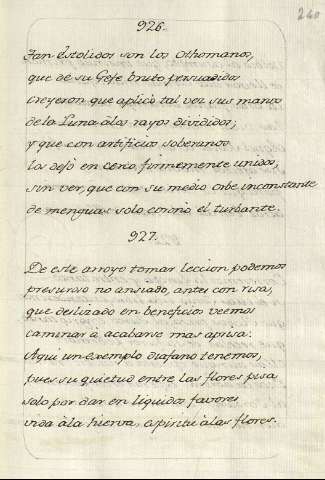 240
926.
Tan Estolidos son los Othomanos,
que de su Gefe bruto persuadidos
creyeron que aplicò tal vez sus manos
de la Luna à los rayos divididos;
y que con artificios soberanos
los dejò en cerco firmemente unidos,
sin ver, que con su medio orbe inconstante
de menguas solo coronò el turbante.
927.
De este arroyo tomar leccion podemos
presuroso no ansiado, antes con risa,
que deslizado en beneficios veemos
caminar à acabarse mas aprisa:
Aqui un exemplo diafano tenemos,
pues su quietud entre las flores pisa
solo por dar en liquidos favores
vida à la hierva, espiritu à las flores.